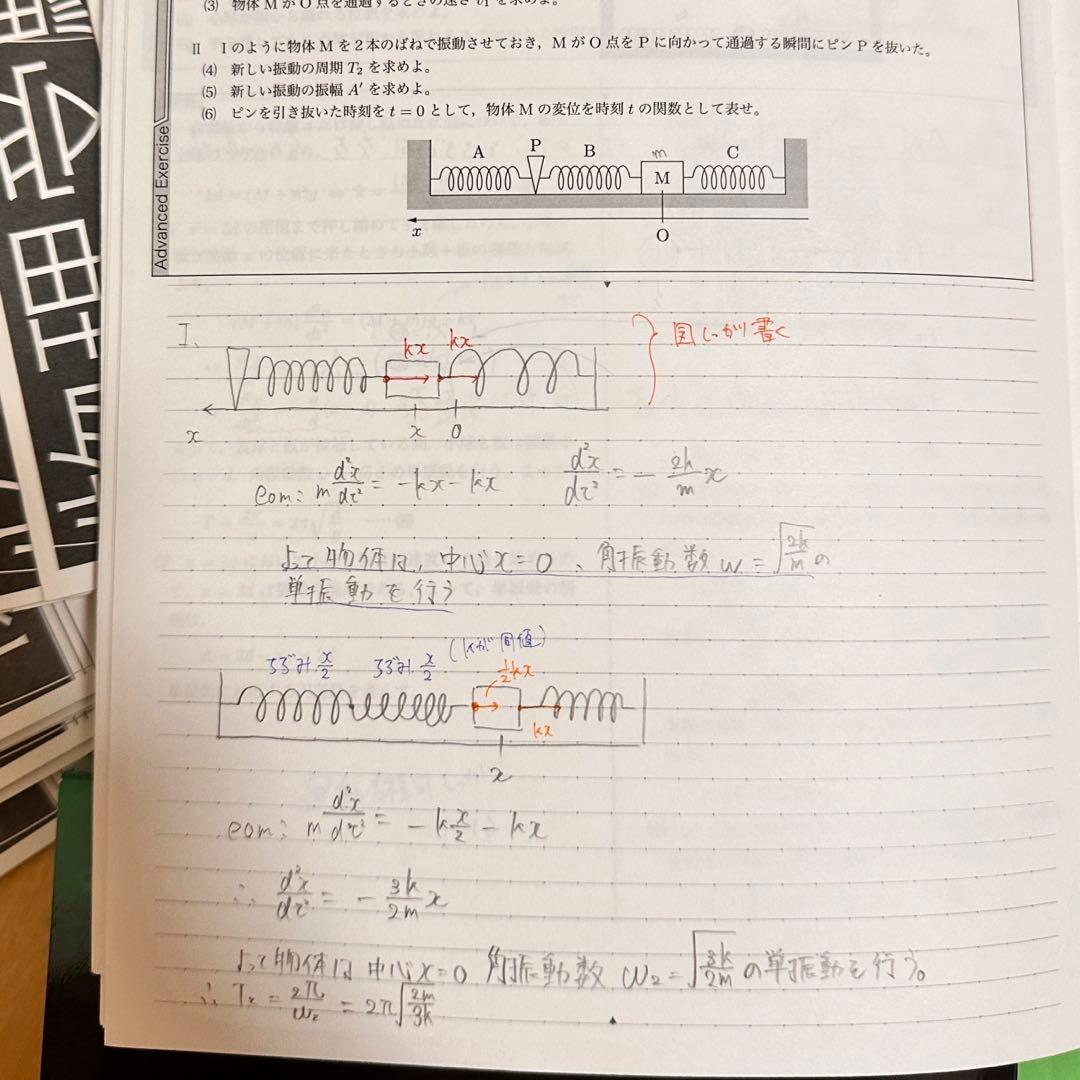 (3) 物体 M が O 点を通過するときの速さ v₁ を求めよ。
II I のように物体 M を2本のばねで振動させておき，M が O 点を P に向かって通過する瞬間にピン P を抜いた。
(4) 新しい振動の周期 T₂ を求めよ。
(5) 新しい振動の振幅 A′ を求めよ。
(6) ピンを引き抜いた時刻を t = 0 として，物体 M の変位を時刻 t の関数として表せ。
Advanced Exercise
A P B m C
M
x O
I.
kx kx 図しっかり書く
x x 0
eom: m d²x/dt² = -kx - kx d²x/dt² = - 2k/m x
よって物体は, 中心 x = 0 、角振動数 ω = √(2k/m) の
単振動を行う
ちぢみ x/2 ちぢみ x/2 (kが同値)
1/2 kx
kx
x
eom: m d²x/dt² = - k x/2 - kx
∴ d²x/dt² = - 3k/2m x
よって物体は 中心 x = 0 角振動数 ω₂ = √(3k/2m) の単振動を行う。
∴ T₂ = 2π/ω₂ = 2π√(2m/3k)